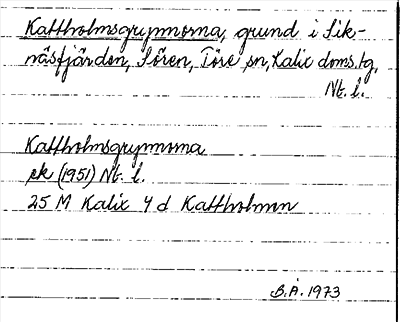 Kattholmsgrynnorna, grund i Sik-
näsfjärden, Sören, Töre sn, Kalix doms.tg,
Nb. l.
Kattholmsgrynnorna
ek (1951) Nb. l.
25 M Kalix 4 d Kattholmen
B.Å. 1973